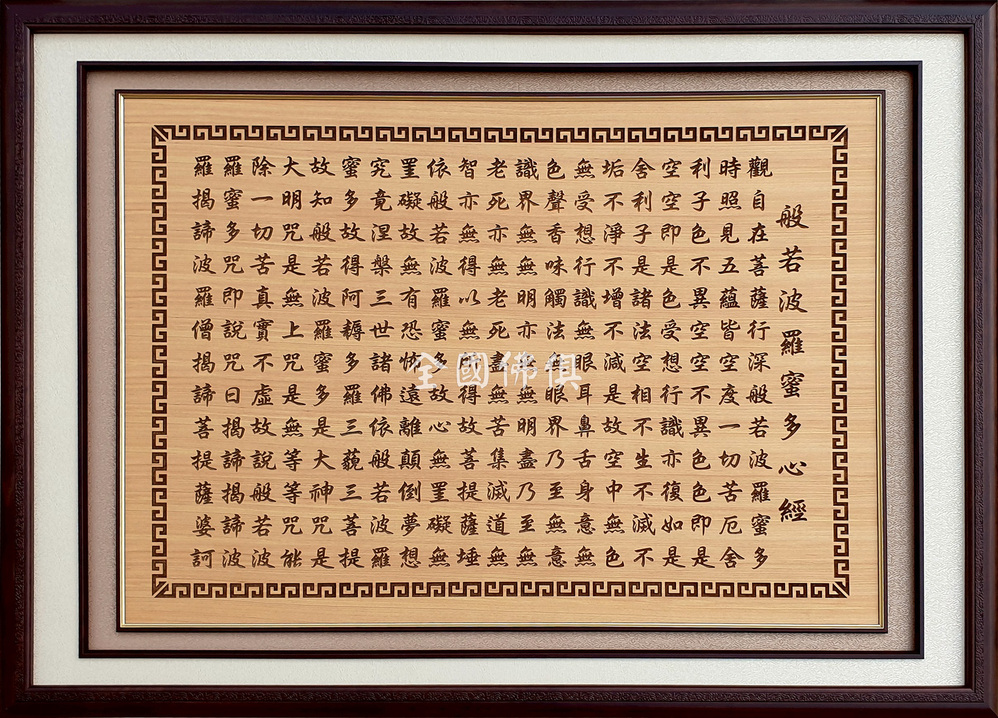 般若波羅蜜多心經
觀自在菩薩行深般若波羅蜜多
時照見五蘊皆空度一切苦厄舍
利子色不異空空不異色色即是
空空即是色受想行識亦復如是
舍利子是諸法空相不生不滅不
垢不淨不增不減是故空中無色
無受想行識無眼耳鼻舌身意無
色聲香味觸法無眼界乃至無意
識界無無明亦無無明盡乃至無
老死亦無老死盡無苦集滅道無
智亦無得以無所得故菩提薩埵
依般若波羅蜜多故心無罣礙無
罣礙故無有恐怖遠離顛倒夢想
究竟涅槃三世諸佛依般若波羅
蜜多故得阿耨多羅三藐三菩提
故知般若波羅蜜多是大神咒是
大明咒是無上咒是無等等咒能
除一切苦真實不虛故說般若波
羅蜜多咒即說咒曰揭諦揭諦波
羅揭諦波羅僧揭諦菩提薩婆訶
全國佛俱